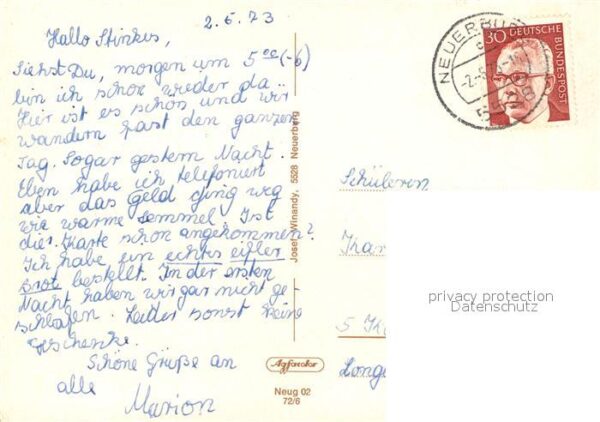 2.6.73
Hallo Stinkus,
Siehst Du, morgen um 5 00 (-6)
bin ich schon wieder da
Hier ist es schön und wir
wandern fast den ganzen
Tag. Sogar gestern Nacht.
Eben habe ich telefoniert
aber das Geld ging weg
wie warme Semmel. Ist
die 1. Karte schon angekommen?
Ich habe ein echtes eifler
Brot bestellt. In der ersten
Nacht haben wir gar nicht ge-
schlafen. Leider sonst keine
Geschenke.
Schöne Grüße an
alle
Marion
Josef Winandy, 5528 Neuerburg
Agfacolor
Neug 02
72/6
NEUERBURG
30 DEUTSCHE
BUNDESPOST
Schülerin
5 Kö
Longe
privacy protection
Datenschutz